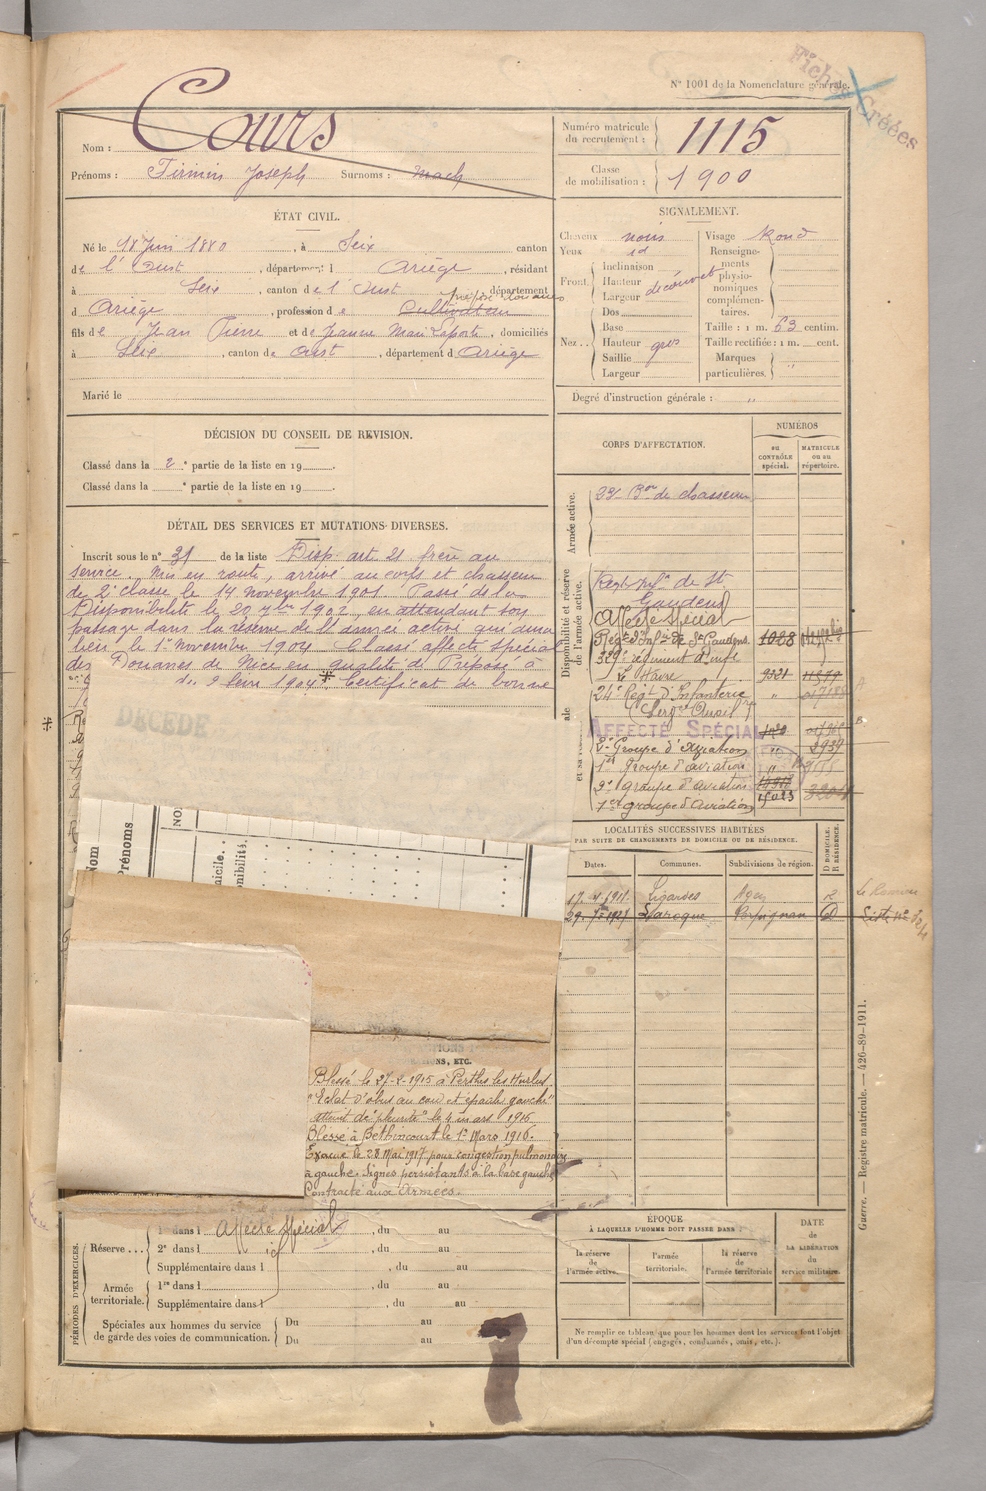 Fiches Créées
N° 1001 de la Nomenclature générale.
Nom : Cours
Prénoms : Firmin Joseph Surnoms : Mach
Numéro matricule du recrutement : 1115
Classe de mobilisation : 1900
ÉTAT CIVIL.
Né le 18 Juin 1880, à Seix canton
de l'Oust, département d Ariège, résidant
à Seix, canton de l'Oust, département
préposé douanes
d Ariège, profession de Cultivateur
fils de Jean Pierre et de Jeanne Marie Laporte, domiciliés
à Seix, canton de Oust, département d Ariège
Marié le
SIGNALEMENT.
Cheveux noirs
Yeux id
Front. Inclinaison
Hauteur
Largeur
découvert
Nez.. Dos
Base
Hauteur
Saillie
Largeur
gros
Visage Rond
Renseignements physionomiques complémentaires.
Taille : 1 m. 63 centim.
Taille rectifiée : 1 m. cent.
Marques particulières. "
Degré d'instruction générale : "
DÉCISION DU CONSEIL DE REVISION.
Classé dans la 2e partie de la liste en 19
Classé dans la e partie de la liste en 19
DÉTAIL DES SERVICES ET MUTATIONS DIVERSES.
Inscrit sous le n° 31 de la liste Disp. art 21 frère au
service. Mis en route, arrivé au corps et chasseur
de 2e classe le 14 novembre 1901. Passé dans la
Disponibilité le 20 7bre 1902, en attendant son
passage dans la réserve de l'armée active qui aura
lieu le 1er novembre 1904. Classé affecté spécial
des Douanes de Nice en qualité de Préposé à
1904 * Certificat de bonne
*
DÉCÉDÉ
Nom
Prénoms
CORPS D'AFFECTATION.
NUMÉROS
au CONTRÔLE spécial.
MATRICULE ou au répertoire.
Armée active.
23e Bon de chasseurs
Disponibilité et réserve de l'armée active.
Régt Infie de St
Gaudens
Affecté Spécial
Régt d'Infie de St Gaudens 1028
329e régiment d'infie
Le Havre 9321 11577
24e Régt d'Infanterie
AFFECTÉ SPÉCIAL
2e Groupe d'Aviation " 2939
1er Groupe d'aviation "
2e groupe d'aviation 3204
1er groupe d'Aviation 15023
LOCALITÉS SUCCESSIVES HABITÉES
PAR SUITE DE CHANGEMENTS DE DOMICILE OU DE RÉSIDENCE.
Dates. Communes. Subdivisions de région. D DOMICILE. R RÉSIDENCE.
17. 1911. Ligardes Agen R
29. 1921 Laroque Perpignan D
ATIONS, ETC.
Blessé le 27-2-1915 à Perthes les Hurlus
"Eclat d'obus au cou et épaule gauche"
atteint de "pleurite" le 4 mars 1916
Blessé à Béthincourt le 1er Mars 1916.
Evacué le 28 Mai 1917 pour congestion pulmonaire
à gauche. Signes persistants à la base gauche
Contracté aux Armées.
PÉRIODES D'EXERCICES.
Réserve... 1re dans l Affecté Spécial, du au
2e dans l id, du au
Supplémentaire dans l, du au
Armée territoriale. 1re dans l, du au
Supplémentaire dans l, du au
Spéciales aux hommes du service de garde des voies de communication. Du au
Du au
ÉPOQUE
À LAQUELLE L'HOMME DOIT PASSER DANS
la réserve de l'armée active.
l'armée territoriale.
la réserve de l'armée territoriale
DATE de LA LIBÉRATION du service militaire.
Ne remplir ce tableau que pour les hommes dont les services font l'objet
d'un décompte spécial (engagés, condamnés, omis, etc.).
Guerre. — Registre matricule. — 426-89-1911.